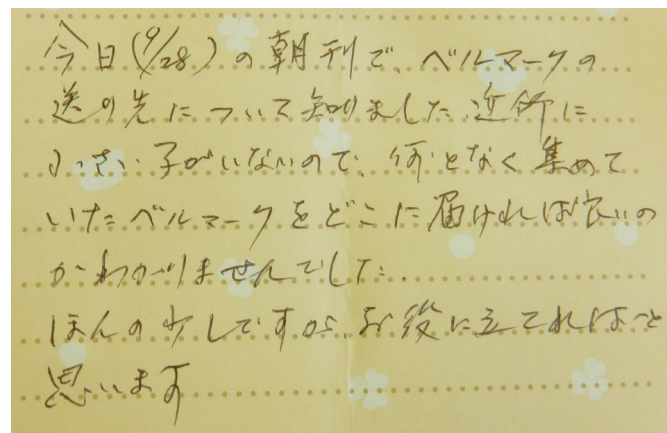 今日(9/28)の朝刊で、ベルマークの
送り先について知りました 近所に
小さい子がいないので、何となく集めて
いたベルマークをどこに届ければ良いの
かわかりませんでした.
ほんの少しですが、お役に立てればと
思います